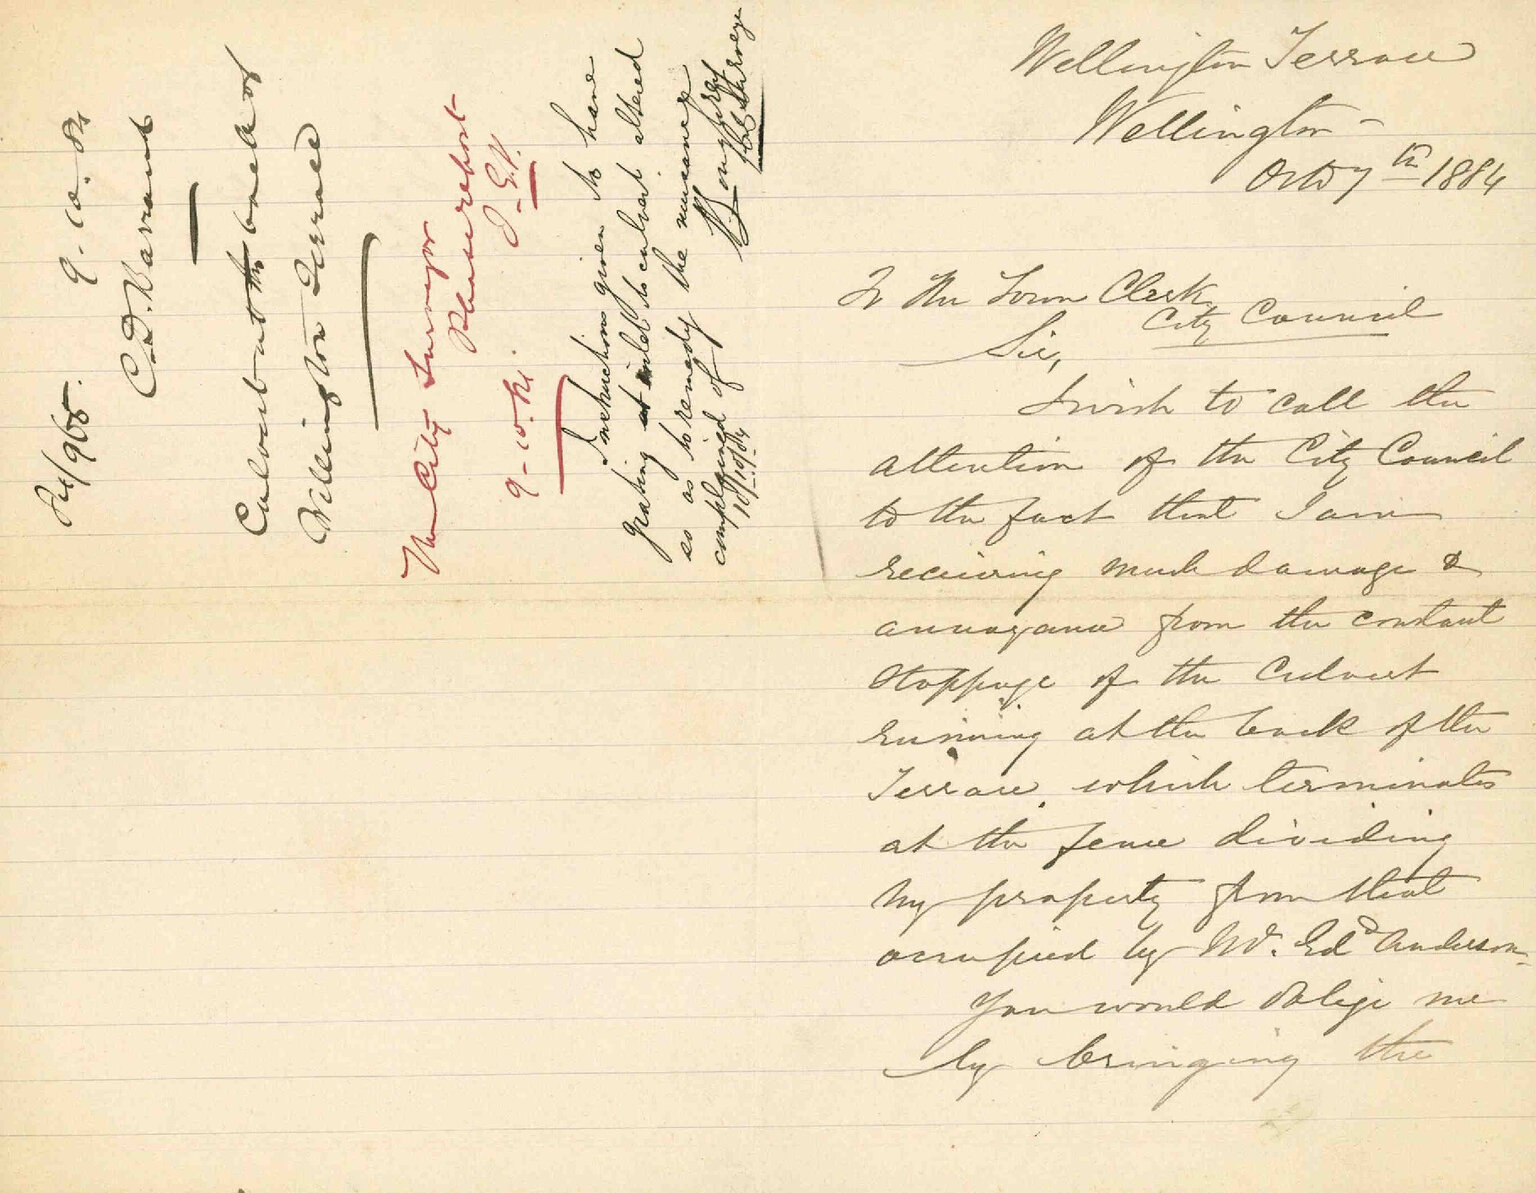 Wellington Terrace
Wellington -
Octo 7th 1884
To The Town Clerk
City Council
Sir,
I wish to call the
attention of the City Council
to the fact that I am
receiving much damage &
annoyance from the constant
stoppage of the Culvert
running at the back of the
Terrace, which terminates
at the fence dividing
my property from that
occupied by Mr. Edd Anderson -
You would oblige me
by bringing the
9-10-84
C. D. Barraud
Culvert at the back of
Wellington Terrace
The City Surveyor
Please report
9-10-84
Instructions given to have
grating at inlet to culvert altered
so as to remedy the nuisance
complained of
10/10/84
City Surveyor